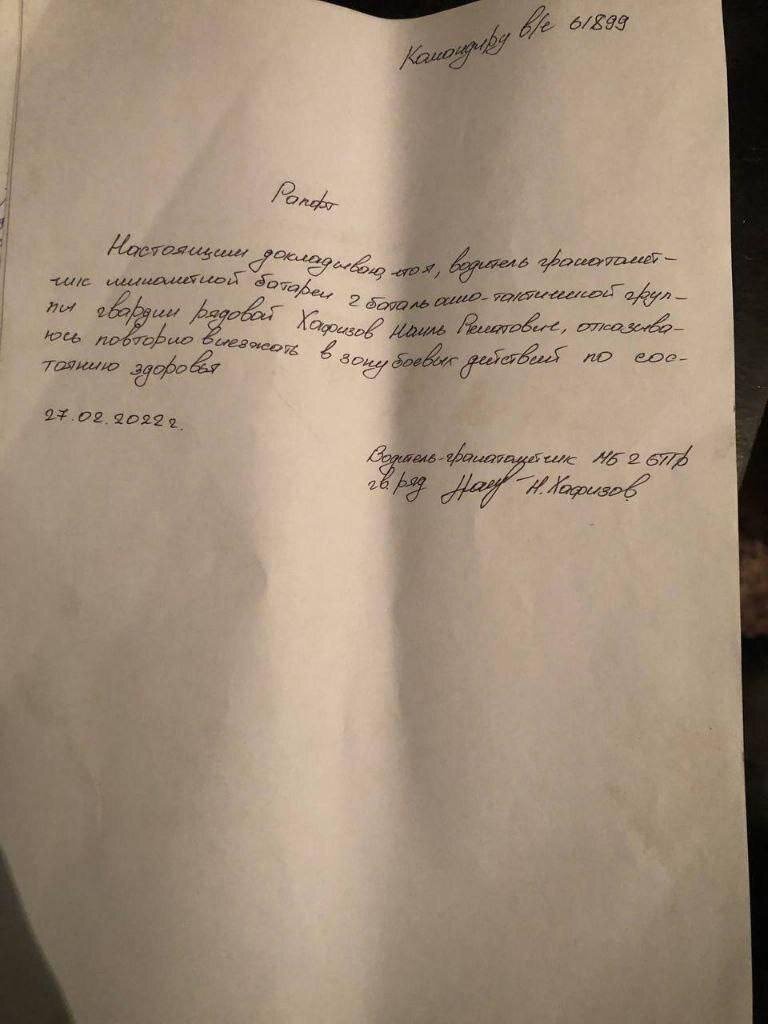 Командиру в/ч 61899
Рапорт
Настоящим докладываю, что я, водитель гранатомёт-
чик минометной батареи 2 батальонно-тактической груп-
пы гвардии рядовой Хафизов Наиль Ренатович, отказыва-
юсь повторно выезжать в зону боевых действий по сос-
тоянию здоровья
27.02.2022 г.
Водитель-гранатометчик МБ 2 БТГр
гв. ряд Н. Хафизов